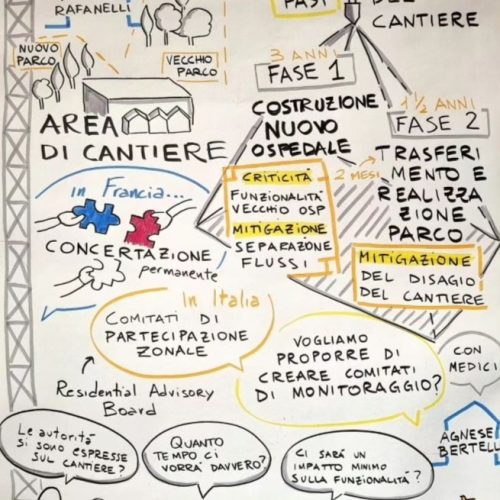 RAFANELLI
NUOVO
PARCO
VECCHIO
PARCO
AREA
DI CANTIERE
FASI
DEL
CANTIERE
3 ANNI
FASE 1
COSTRUZIONE
NUOVO
OSPEDALE
CRITICITÀ
FUNZIONALITÀ
VECCHIO OSP
MITIGAZIONE
SEPARAZIONE
FLUSSI
2 MESI
1 ½ ANNI
FASE 2
TRASFERI
MENTO E
REALIZZA
ZIONE
PARCO
MITIGAZIONE
DEL DISAGIO
DEL CANTIERE
in Francia...
CONCERTAZIONE
permanente
In Italia
COMITATI DI
PARTECIPAZIONE
ZONALE
Residential Advisory
Board
VOGLIAMO
PROPORRE DI
CREARE COMITATI
DI MONITORAGGIO?
CON
MEDICI
AGNESE
BERTELLI
Le autorità
si sono espresse
sul cantiere?
QUANTO
TEMPO CI
VORRÀ DAVVERO?
CI SARÀ UN
IMPATTO MINIMO
SULLA FUNZIONALITÀ?